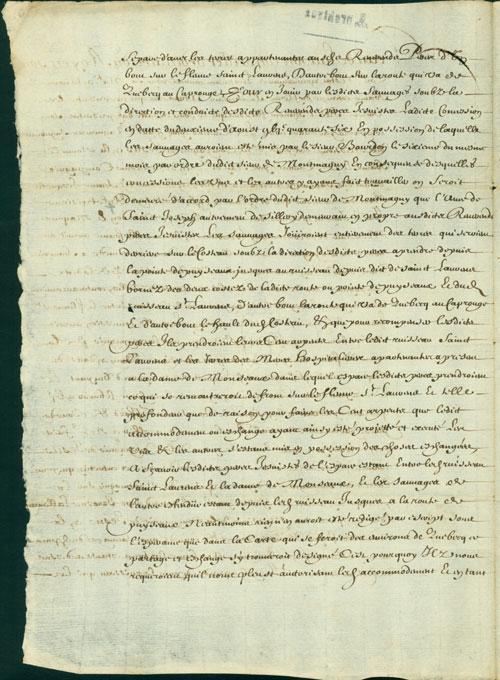 Separe dans les terres appartenantes ausdits Reverends Peres d'un
bout sur le fleuve Saint Laurens, D'autre bout sur la route qui va de
Quebecq au Caprouge Pour en Jouir par lesdits Sauvages soubz la
direction et conduite desdits Reverends peres Jesuistes Ladite Concession
en datte du dixiesme d'aoust quarante Six En possession de laquelle
les Sauvages auroient esté mis par le sieur Bourdon le sixiesme du mesme
mois par ordre dudit sieur de Montmagny En consequence desquelles
concessions les uns et les autres y ayans fait travailler on seroit
demeuré d'acord par l'ordre dudit sieur de Montmagny que l'Ance de
Saint Joseph autrement de Sillery demeurant en propre ausdits Reverends
peres Jesuistes Les Sauvages Jouiroient entierement des terres qui seroient
derriere sur le Costeau soubz la direction desdits peres a prendre depuis
la pointe de puyseaux jusques au ruisseau depuis dit de Saint Laurens
bornez des deux costez de ladite route ou pointe de puyseaux Et dud.
ruisseau St. Laurens, D'autre bout la route qui va de Quebecq au Caprouge
Et d'autre bout le hault dud. Costeau, Et que pour recompense lesdits
peres Cent arpents Entre ledit ruisseau Saint
Laurens et les terres des Meres Hospitalieres apartenantes a present
a la dame de Monceaux dans lequel espace lesdits peres prendroient
ce qui se rencontreroit de front sur le fleuve St. Laurens Et telle
profondeur que de raison pour faire les Cent arpents que ledit
accommodement ou eschange ayant ainsy esté projetté et executé Les
uns Et les autres s'estans mis en possession des choses eschangées
A sçavoir lesdits peres Jesuistes de l'espace estant Entre led. ruisseau
Saint Laurens Et la dame de Monceaux, Et les Sauvages de
l'autre estendue estant depuis led. ruisseau Jusques a la route de
puyseaux Neantmoins rien n'en auroit esté redigé par escript sous
l'esperance que dans la Carte qui se feroit des environs de Quebecq ce
partage et eschange s'y trouveroit designé C'est pourquoy Ilz nous
requeroient qu'il nous pleust autoriser led. accommodement Et en tant